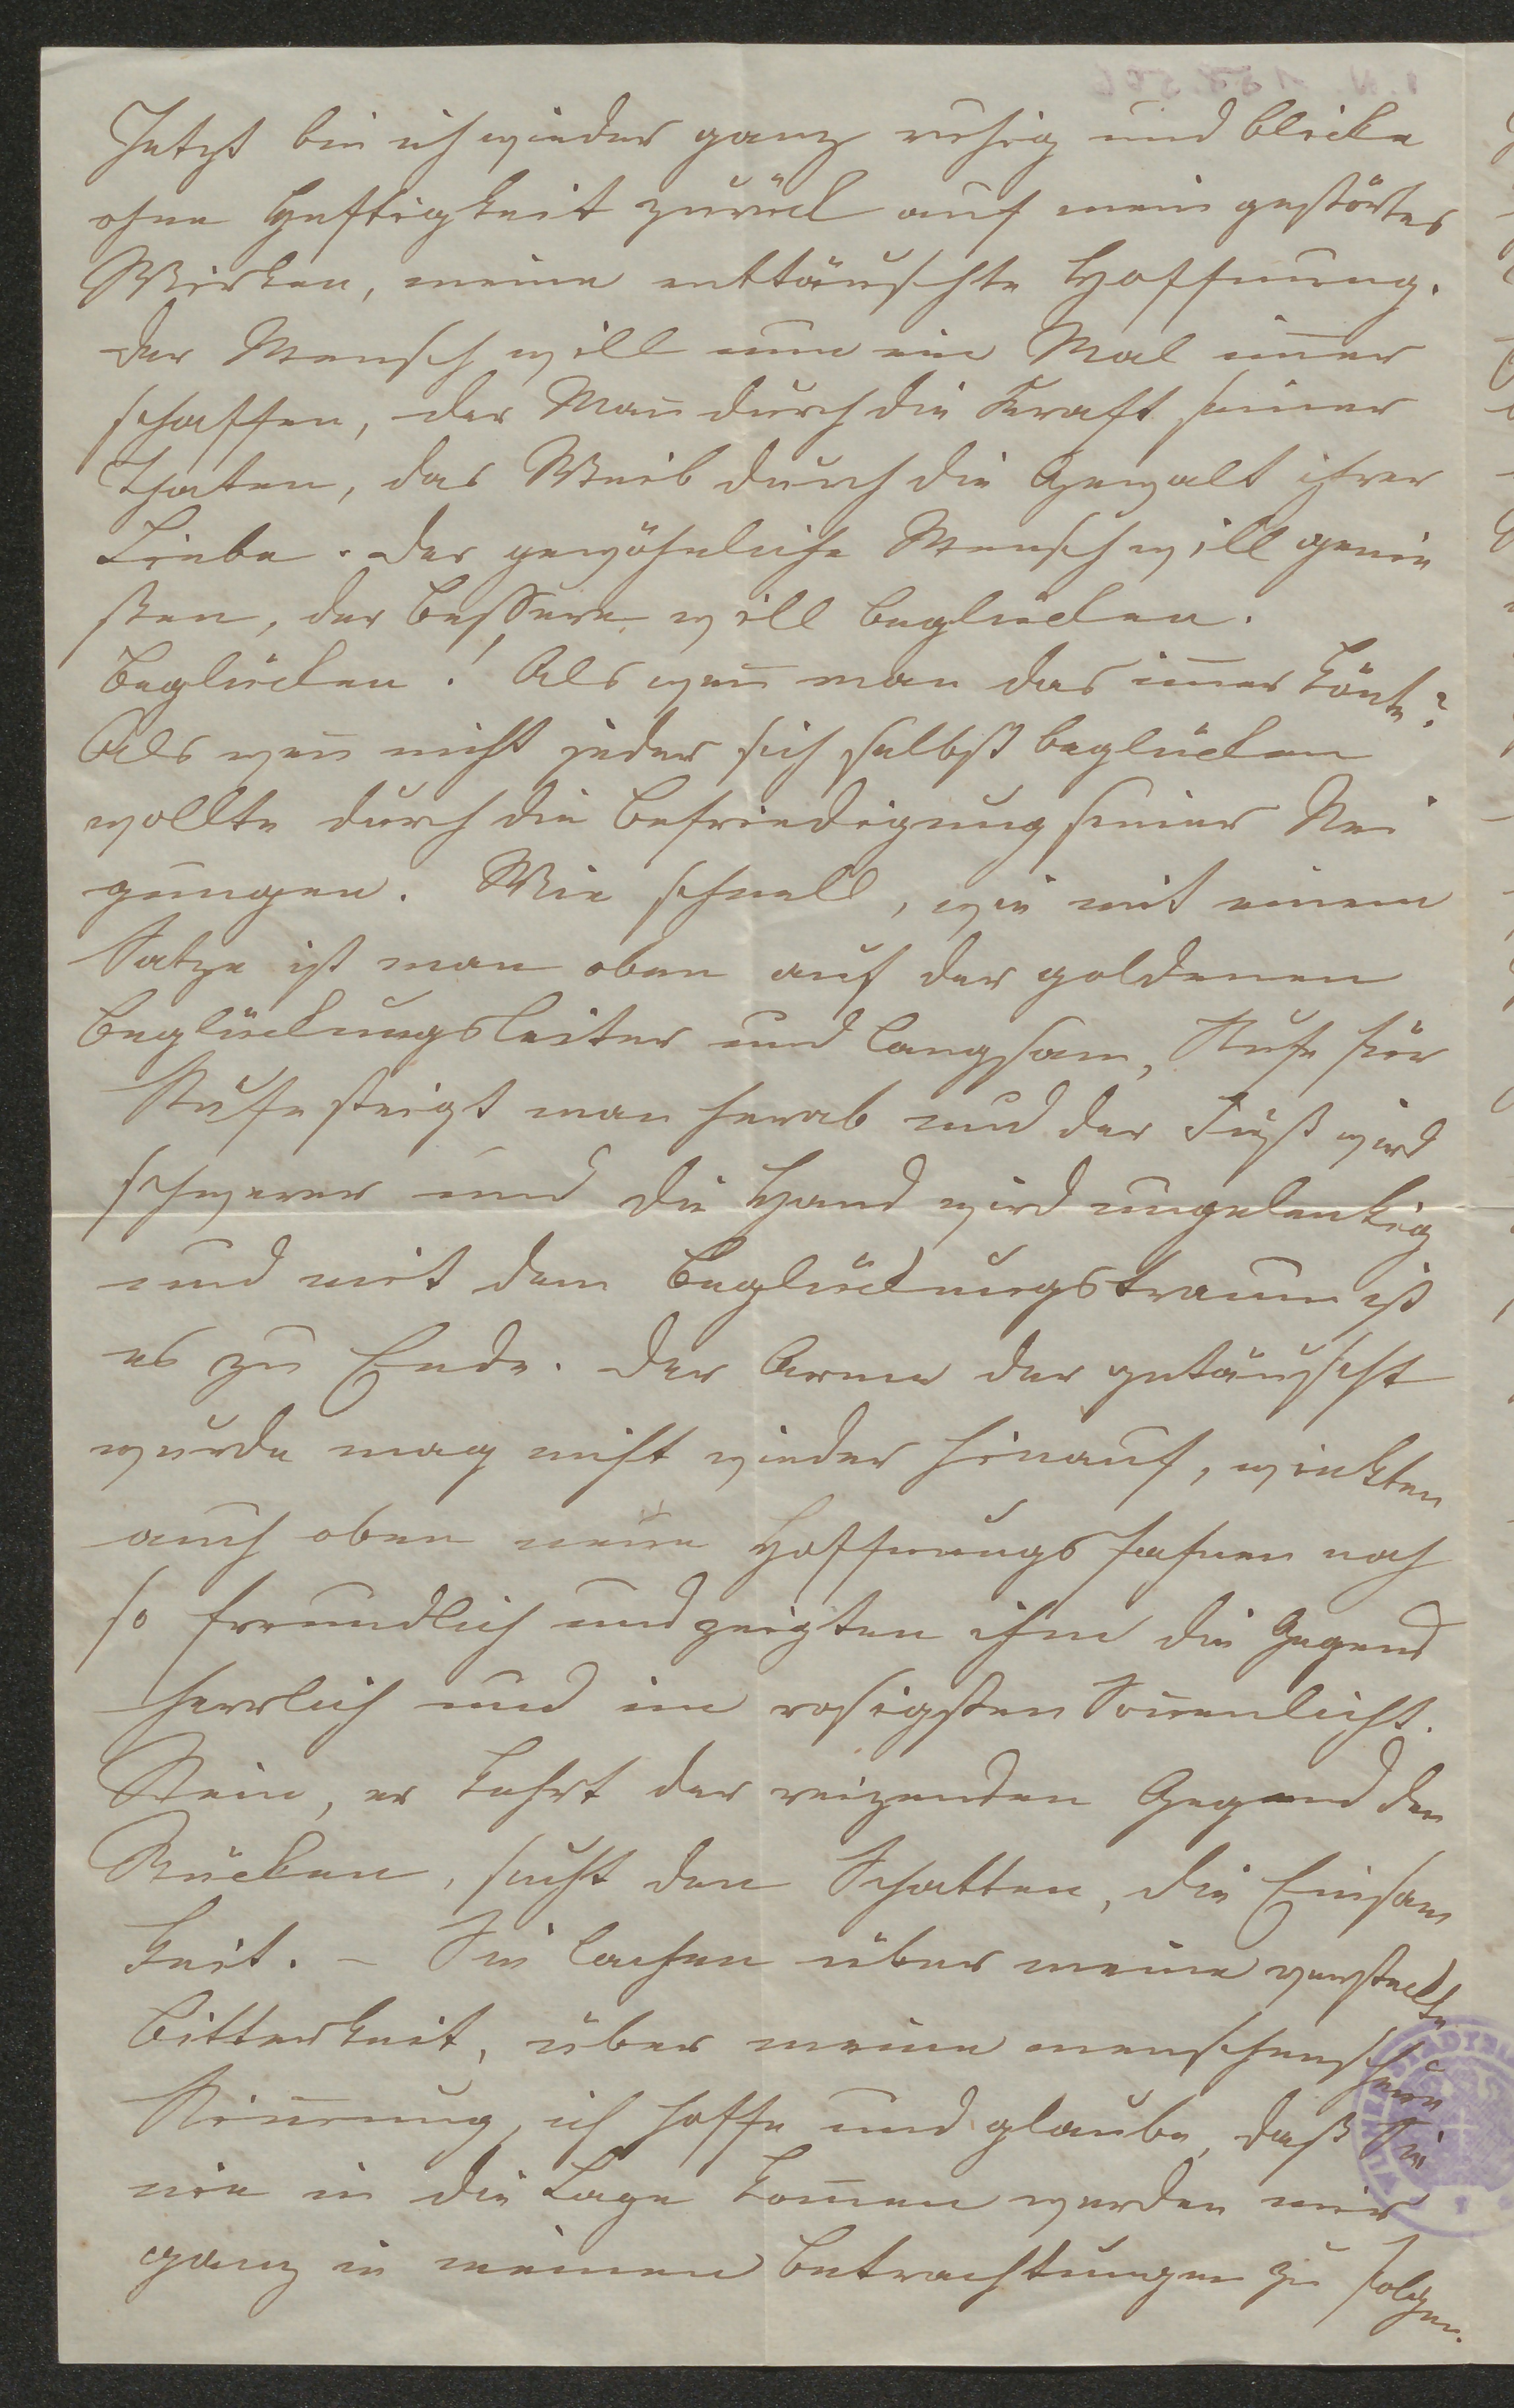 Jetzt bin ich wieder ganz ruhig und blicke
ohne Heftigkeit zurück auf mein gestörtes
Wirken, meine enttäuschte Hoffnung.
Der Mensch will nun ein Mal im̄er
schaffen, der Man̄ durch die Kraft seiner
Thaten, das Weib durch die Gewalt ihrer
Liebe. Der gewöhnliche Mensch will genie
ßen, der bessere will beglücken.
Beglücken! Als wen̄ man das im̄er kön̄te?
Als wen̄ nicht jeder sich selbst beglücken
wollte durch die Befriedigung seiner Nei
gungen. Wie schnell, wie mit einem
Satze ist man oben auf der goldenen
Beglückungsleiter und langsam, Stufe für
Stufe steigt man herab und der Fuß wird
schwerer und die Hand wird ungelenkig
und mit dem Beglückungstraum ist
es zu Ende. Der Arme der getäuscht
wurde mag nicht wieder hinauf, winkten
auch oben neue Hoffnungsfahnen noch
so freundlich und zeigten ihm die Gegend
herrlich und im rosigsten Son̄enlicht.
Nein, er kehrt der reizenden Gegend den
Rücken, sucht den Schatten, die Einsam
keit. – Sie lachen über meine versteckte
Bitterkeit, über meine menschenscheue
Stim̄ung, ich hoffe und glaube, daß Sie
nie in die Lage kom̄en werden mir
ganz in meinen Betrachtungen zu folgen.